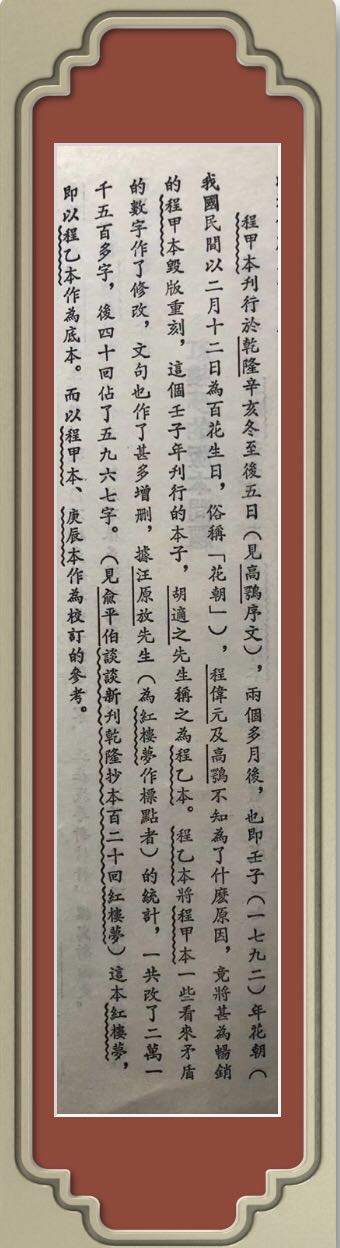 程甲本刊行於乾隆辛亥冬至後五日(見高鶚序文),兩個多月後,也即壬子(一七九二)年花朝(
我國民間以二月十二日為百花生日,俗稱「花朝」),程偉元及高鶚不知為了什麼原因,竟將甚為暢銷
的程甲本毀版重刻,這個壬子年刊行的本子,胡適之先生稱之為程乙本。程乙本將程甲本一些看來矛盾
的數字作了修改,文句也作了甚多增刪,據汪原放先生(為紅樓夢作標點者)的統計,一共改了二萬一
千五百多字,後四十回佔了五九六七字。(見俞平伯談談新刊乾隆抄本百二十回紅樓夢)這本紅樓夢,
即以程乙本作為底本。而以程甲本、庚辰本作為校訂的參考。